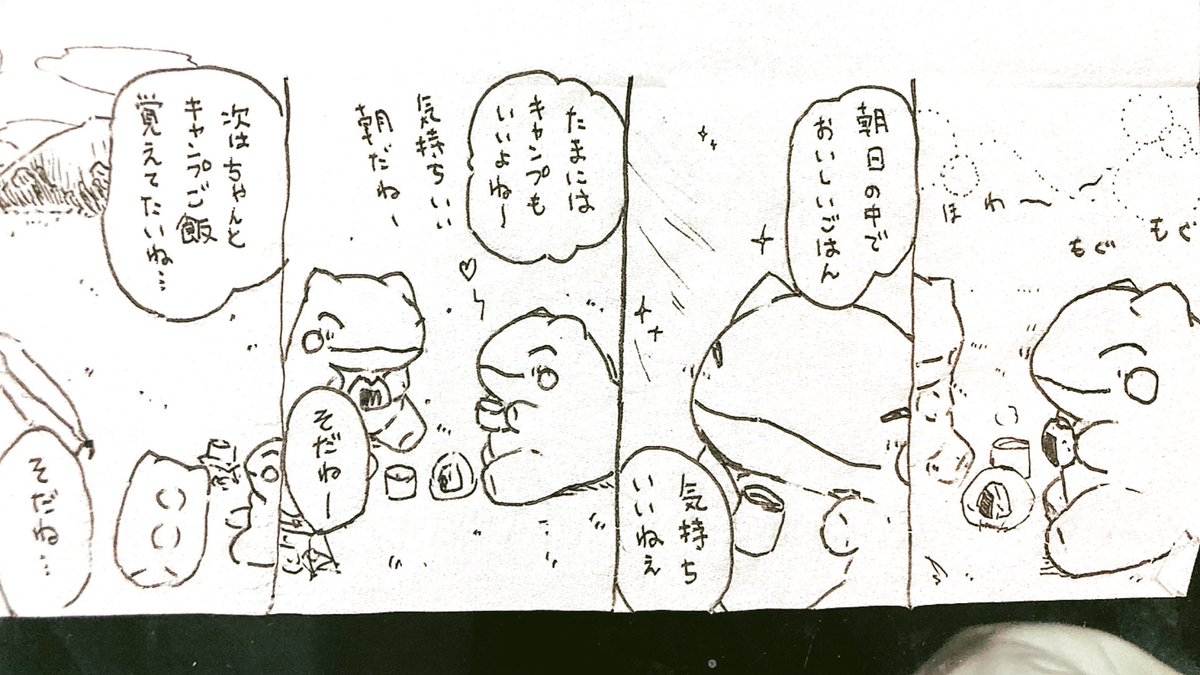 ほわ〜〜
もぐ
もぐ
朝日の中で
おいしいごはん
気持ち
いいねぇ
たまには
キャンプも
いいよね〜
気持ちいい
朝だね〜
そだねー
次はちゃんと
キャンプご飯
覚えてたいね…
そだね…